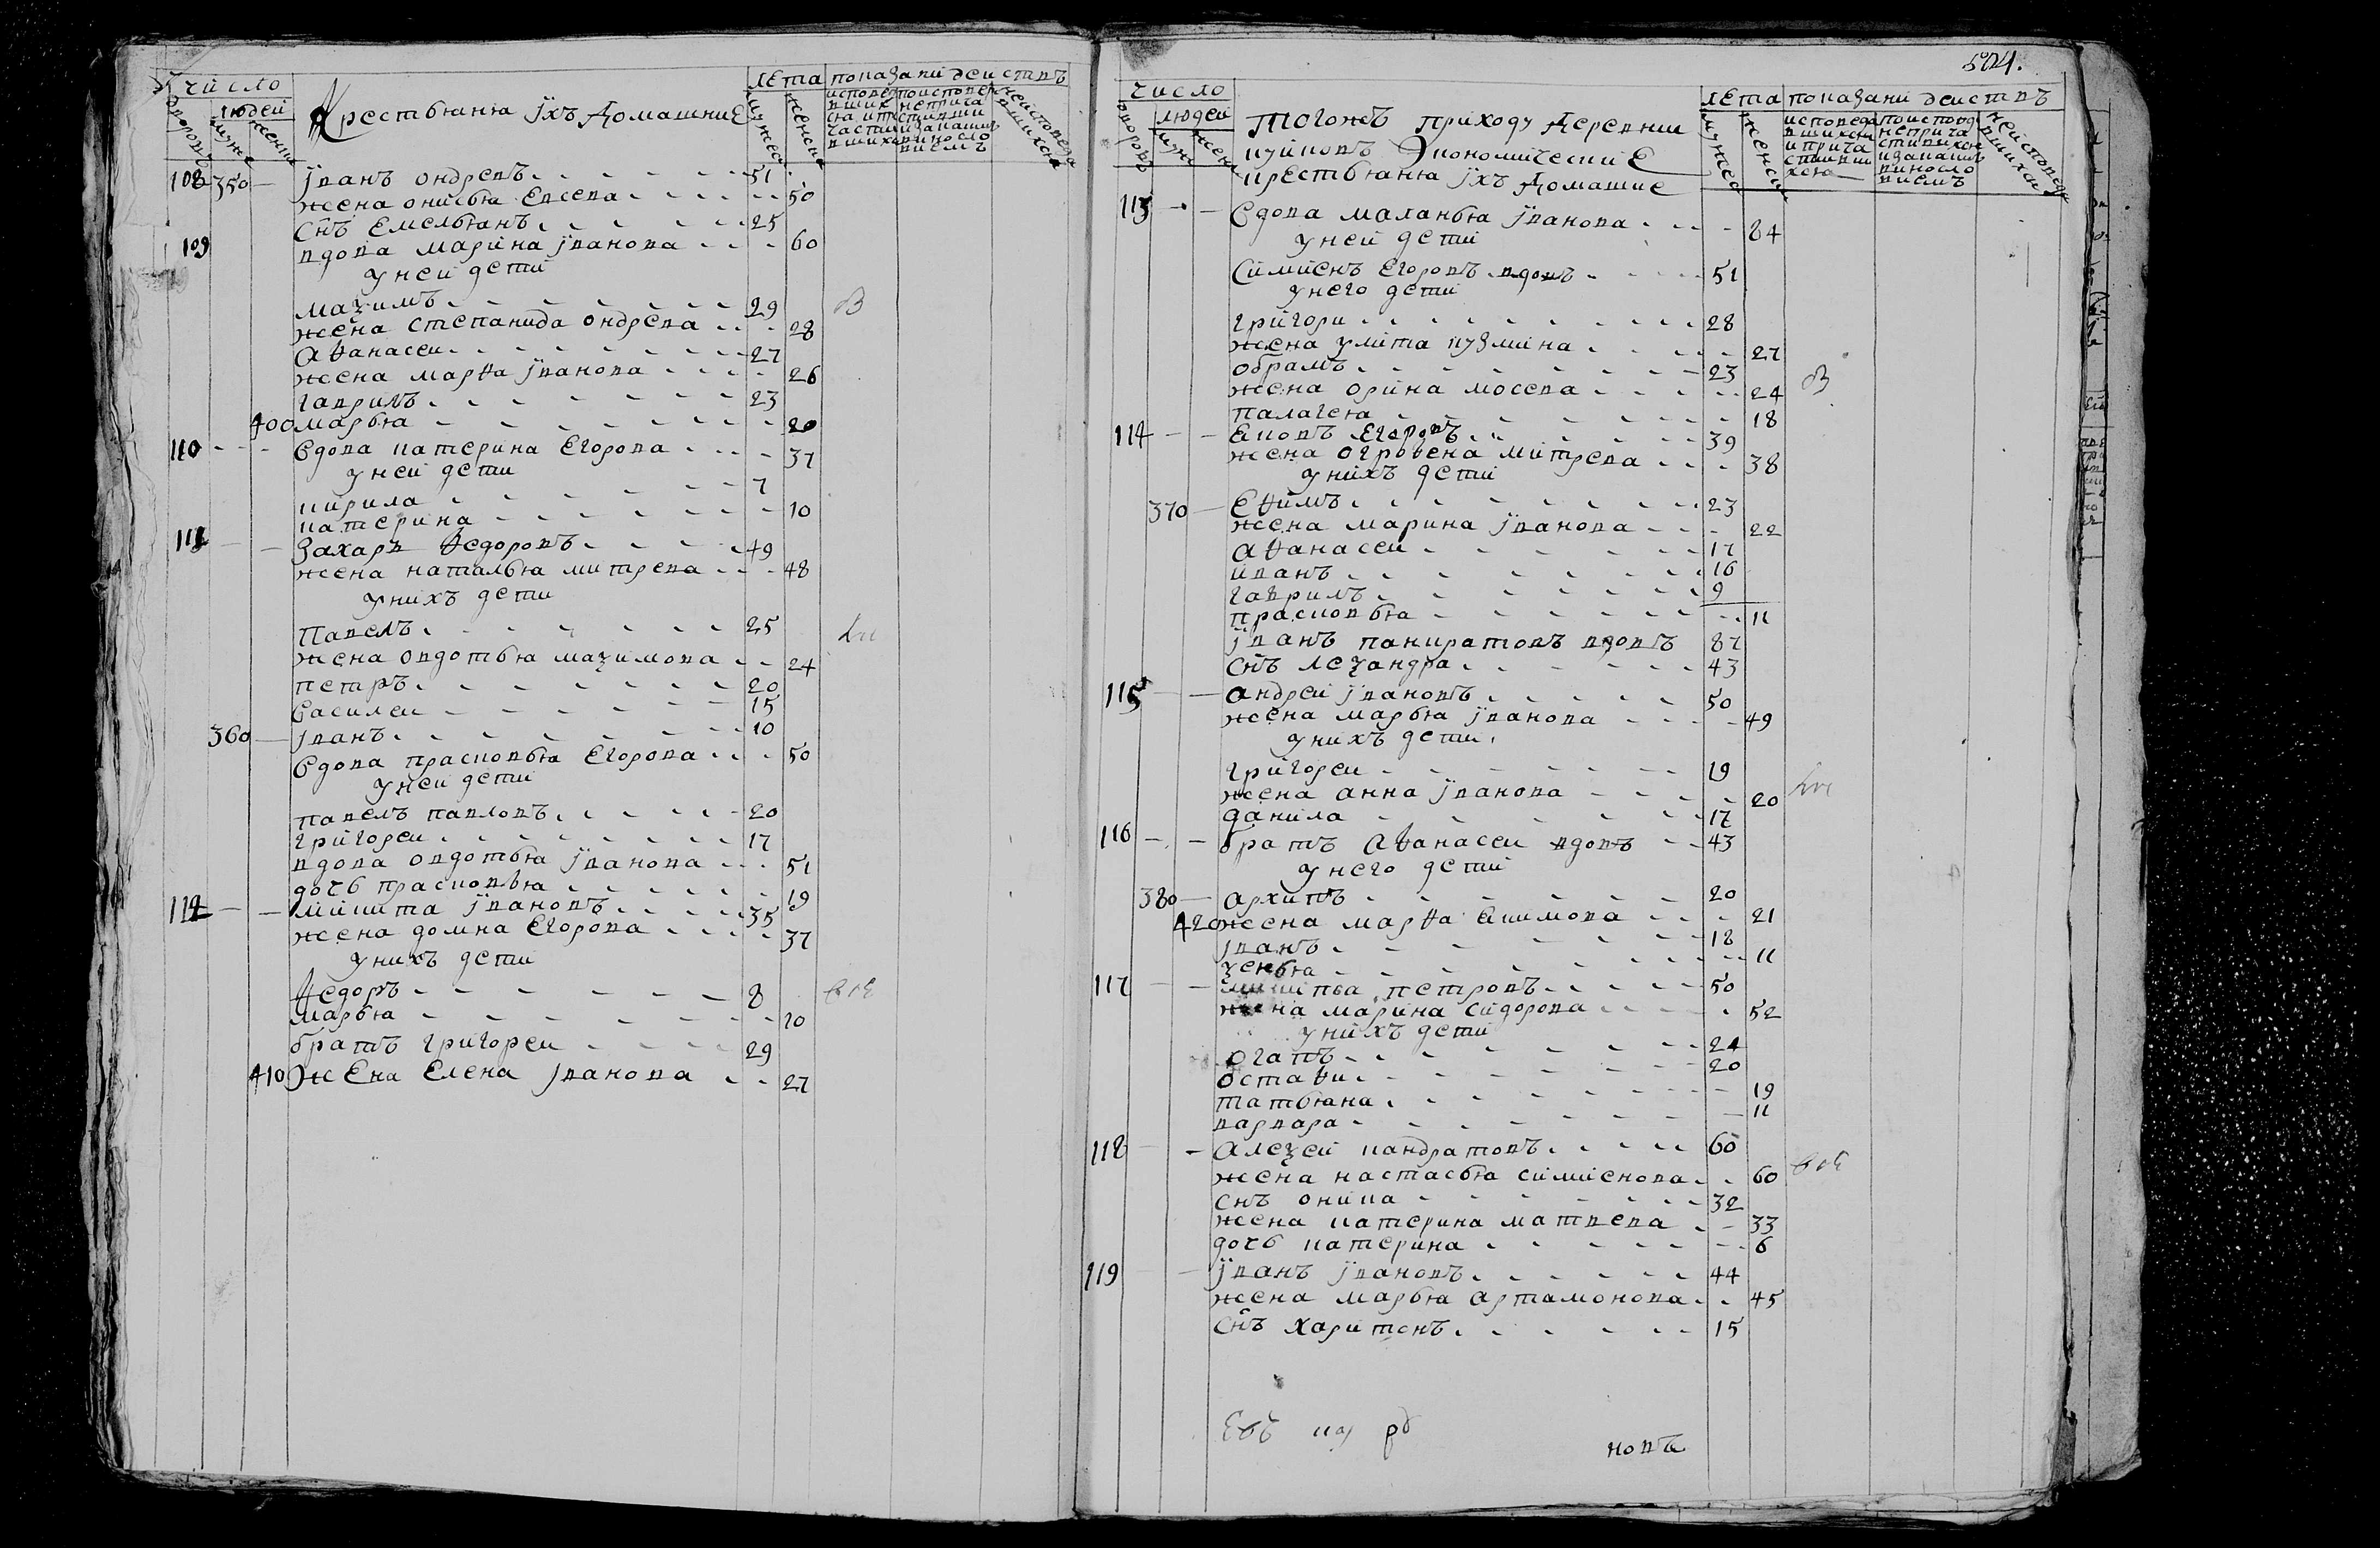 число
людей
дворовъ
мужеска
женска
Крестьяня ихъ Домашние
лета
показани действъ
мужеска
женска
108 350 Iванъ ондревъ 51
жена онисья Евсева 50
Снъ Емельянъ 25
109 вдова марина Iванова 60
у ней дети
маѯимъ 29
жена степанида ондрева 28
аѳанасеи 27
жена марѳа Iванова 26
гаврилъ 23
400 марья 20
110 вдова катерина Егорова 37
у ней дети
кирила 7
катерина 10
111 Захаръ ѳедоровъ 49
жена наталья митрева 48
у нихъ дети
Павелъ 25
жена овдотья маѯимова 24
петръ 20
василеи 15
360 Iванъ 10
вдова прасковья Егорова 50
у ней дети
павелъ павловъ 20
григореи 17
вдова овдотья Iванова 51
дочь прасковья 19
112 микита Iвановъ 35
жена домна Егорова 37
у нихъ дети
ѳедоръ 8
марья 10
братъ григореи 29
410 жена Елена Iванова 27
524.
число
людей
дворовъ
Тогожъ приходу Деревни
куйковъ Экономический
крестьяня ихъ Домашние
лета
показани действъ
мужеска
женска
113 вдова маланья Iванова 84
у ней дети
Симиенъ Егоровъ вдовъ 51
у него дети
григори 28
жена улита кузмина 27
обрамъ 23
жена орина мосева 24
палагея 18
114 Яковъ Егоровъ 39
жена огровена митрева 38
у нихъ дети
370 Еѳимъ 23
жена марина Iванова 22
аѳанасеи 17
иванъ 16
гаврилъ 9
прасковья 11
Iванъ панкратовъ вдовъ 87
снъ леѯандра 43
115 андреи Iвановъ 50
жена марья Iванова 49
у нихъ дети
григореи 19
жена анна Iванова 20
данила 17
116 братъ аѳанасеи вдовъ 43
у него дети
380 архипъ 20
420 жена марѳа Якимова 21
Iванъ 18
ѯенья 11
117 петровъ 50
жена марина сидорова 52
у нихъ дети
огапъ 24
остаѳи 20
татьяна 19
варвара 11
118 алеѯей кандратовъ 60
жена настасья симиенова 60
снъ оника 32
жена катерина матвева 33
дочь катерина 6
119 Iванъ Iвановъ 44
жена марья артамонова 45
снъ харитонъ 15
новъ